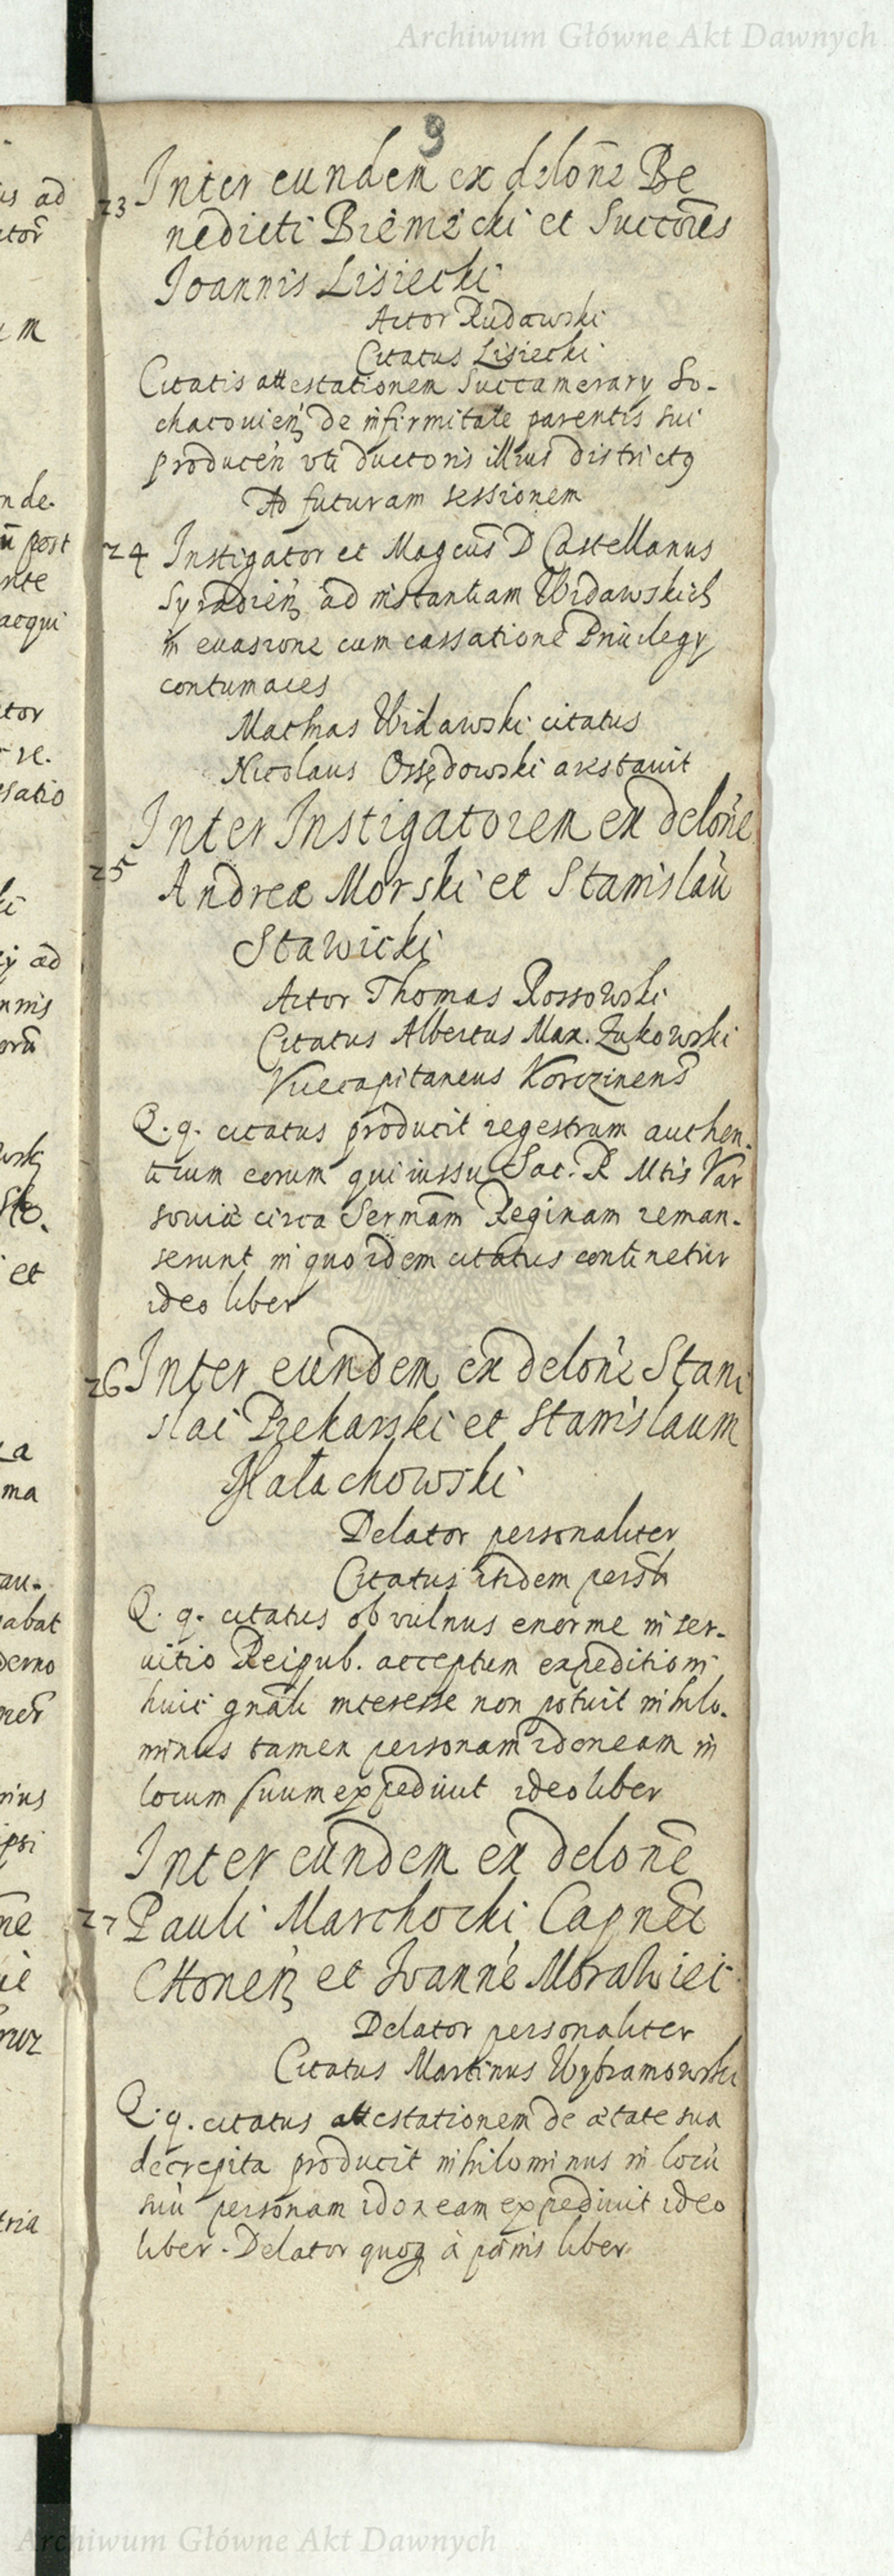 Archiwum Główne Akt Dawnych
9
23 Inter eundem ex delōne Be
nedicti Biemiecki et Succōres
Joannis Lisiecki
Actor Rudawski
Citatus Lisiecki
Citatis attestationem Succamerary So-
chacouień de infirmitate parentis sui
producēn uti ductoris illius districtꝰ
Ad futuram sessionem
24 Instigator et Magcūs D Castellanus
Syradień ad instantiam Widawskich
in euasione cum cassatione Priuilegy
contumaces
Mathias Widawski citatus
Nicolaus Ossędowski arestauit
Inter Instigatorem ex delōne
25 Andreæ Morski et Stanislaū
Stawicki
Actor Thomas Rossowski
Citatus Albertus Max. Żukowski
Vicecapitaneus Korczinens̄
Q. q. citatus producit regestrum authen-
ticum eorum qui iussu Sac. R Mtis Var
souiæ circa Sermām Reginam reman-
serunt in quo idem citatus continetur
ideo liber
26 Inter eundem ex delōne Stani
slai Piekarski et Stanislaum
Małachowski
Delator personaliter
Citatus itidem persōn
Q. q. citatus ob vulnus enorme in ser-
uitio Reipub. acceptum expeditioni
huic gnāli interesse non potuit nihilo-
minus tamen personam idoneam in
locum suum expediuit ideo liber
Inter eundem ex delone
27 Pauli Marchocki Capnēi
Cztonēn et Joannē Morawiec
Delator personaliter
Citatus Martinus Wybramowski
Q. q. citatus attestationem de ætate sua
decrepita producit nihilominus in locū
suū personam idoneam expediuit ideo
liber. Delator quoq à pœnis liber
Archiwum Główne Akt Dawnych